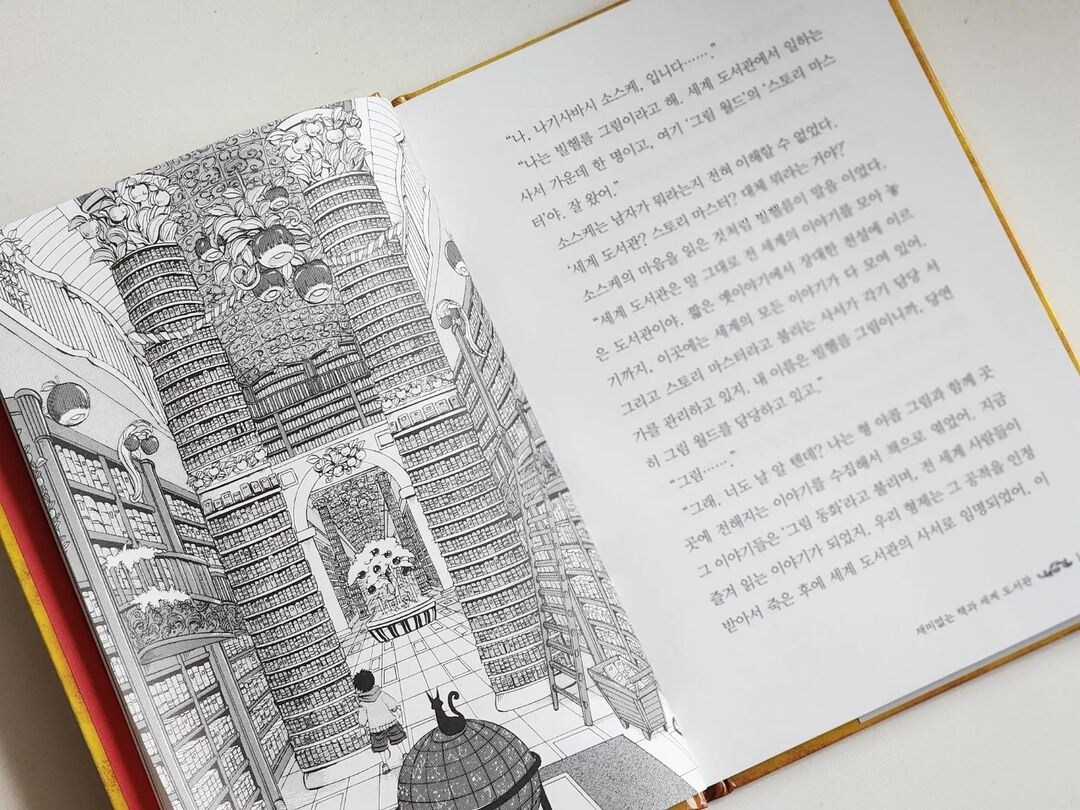 “나, 나기사바시 소스케, 입니다…….”
“나는 빌헬름 그림이라고 해. 세계 도서관에서 일하는
사서 가운데 한 명이고, 여기 ‘그림 월드’의 ‘스토리 마스
터’야. 잘 왔어.”
소스케는 남자가 뭐라는지 전혀 이해할 수 없었다.
‘세계 도서관? 스토리 마스터? 대체 뭐라는 거야?’
소스케의 마음을 읽은 것처럼 빌헬름이 말을 이었다.
“세계 도서관은 말 그대로 전 세계의 이야기를 모아 놓
은 도서관이야. 짧은 옛이야기에서 장대한 전설에 이르
기까지, 이곳에는 세계의 모든 이야기가 다 모여 있어.
그리고 스토리 마스터라고 불리는 사서가 각기 담당 서
가를 관리하고 있지. 내 이름은 빌헬름 그림이니까, 당연
히 그림 월드를 담당하고 있고.”
“그림…….”
“그래. 너도 날 알 텐데? 나는 형 야콥 그림과 함께 곳
곳에 전해지는 이야기를 수집해서 책으로 엮었어. 지금
그 이야기들은 ‘그림 동화’라고 불리며, 전 세계 사람들이
즐겨 읽는 이야기가 되었지. 우리 형제는 그 공적을 인정
받아서 죽은 후에 세계 도서관의 사서로 임명되었어. 이
재미없는 책과 세계 도서관